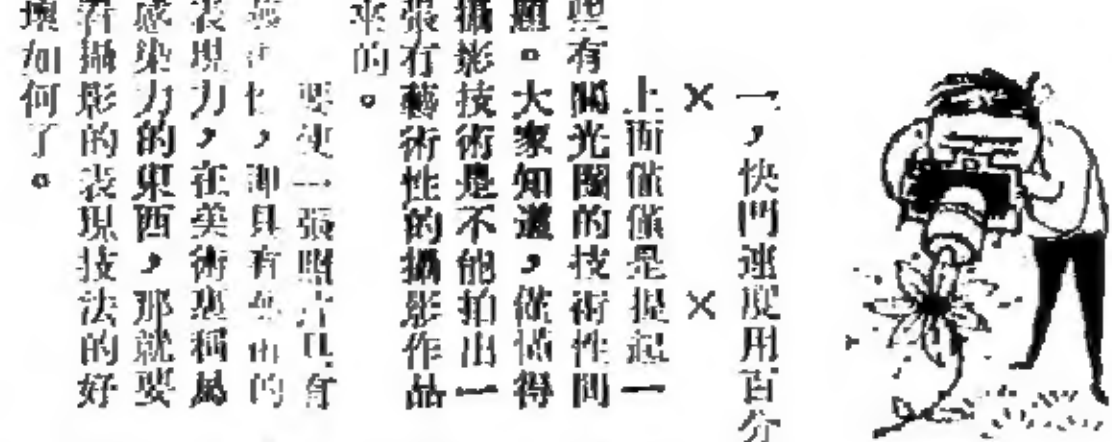 一，快門速度用百分
××
上面僅僅是提起一
些有關光圈的技術性問
題。大家知道，僅懂得
攝影技術是不能拍出一
張有藝術性的攝影作品
來的。
要使一張照片具有
性，即具有的
表現力，在美術裏稱爲
感染力的東西，那就要
看攝影的表現技法的好
壞如何了。